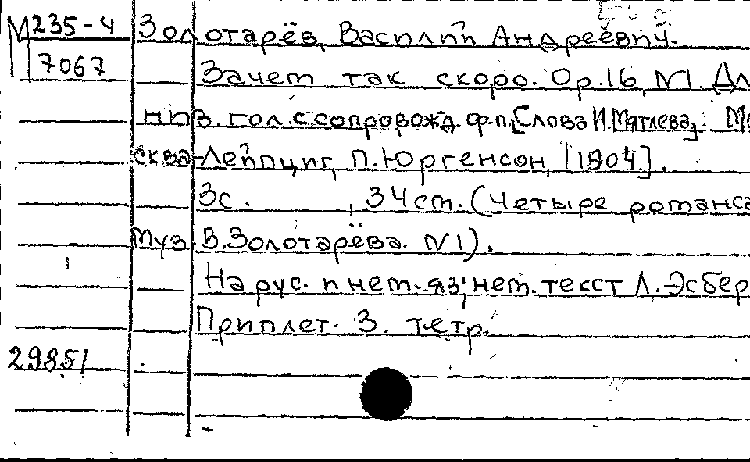 М 235-4 Золотарёв, Василий Андреевич.
7067 Зачем так скоро. Op.16, №1. Дл
низ. гол. с сопровожд. ф-п. [Слова И.Мятлева]. Мо
сква-Лейпциг, П.Юргенсон, [1904].
3с. , 34см. (Четыре романса
Муз. В.Золотарёва. №1).
На рус. и нем. яз; нем. текст Л.Эсбер
Приплет. 3. тетр.
29851